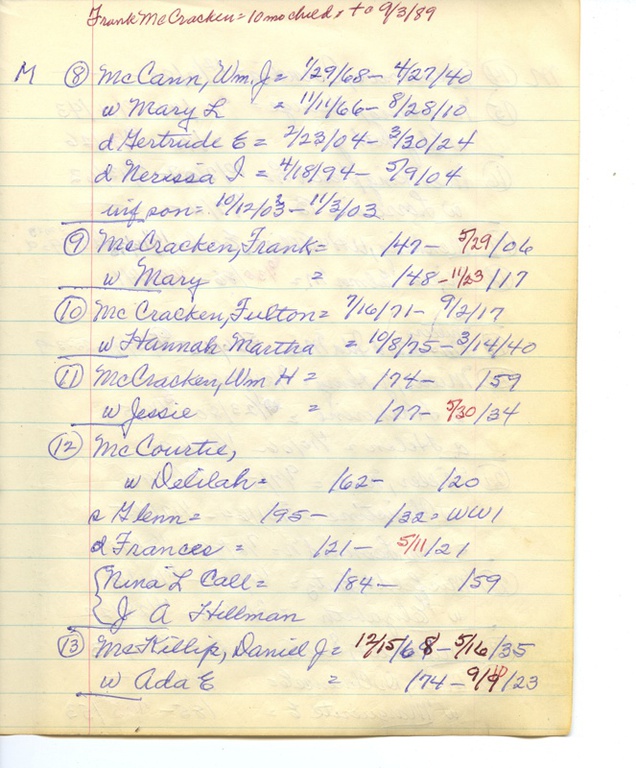 Frank McCracken = 10 mo child, to 9/3/89
M ⑧ McCann, Wm. J = 1/29/68 - 4/27/40
w Mary L = 11/11/66 - 8/28/10
d Gertrude E = 2/23/04 - 3/30/24
d Nerissa I. = 4/18/94 - 5/9/04
inf son = 10/12/03 - 11/3/03
⑨ McCracken, Frank = /47 - 5/29/06
w Mary = /48 - 11/23/17
⑩ McCracken, Fulton = 7/16/71 - 9/2/17
w Hannah Martha = 10/8/75 - 3/14/40
⑪ McCracken, Wm H = /74 - /59
w Jessie = /77 - 5/30/34
⑫ McCourtie,
w Delilah = /62 - /20
s Glenn = /95 - /32 = WW1
d Frances = /21 - 5/11/21
{ Nina L Call = /84 - /59
J A Hillman
⑬ McKillip, Daniel J = 12/15/68 - 5/16/35
w Ada E = /74 - 9/9/23